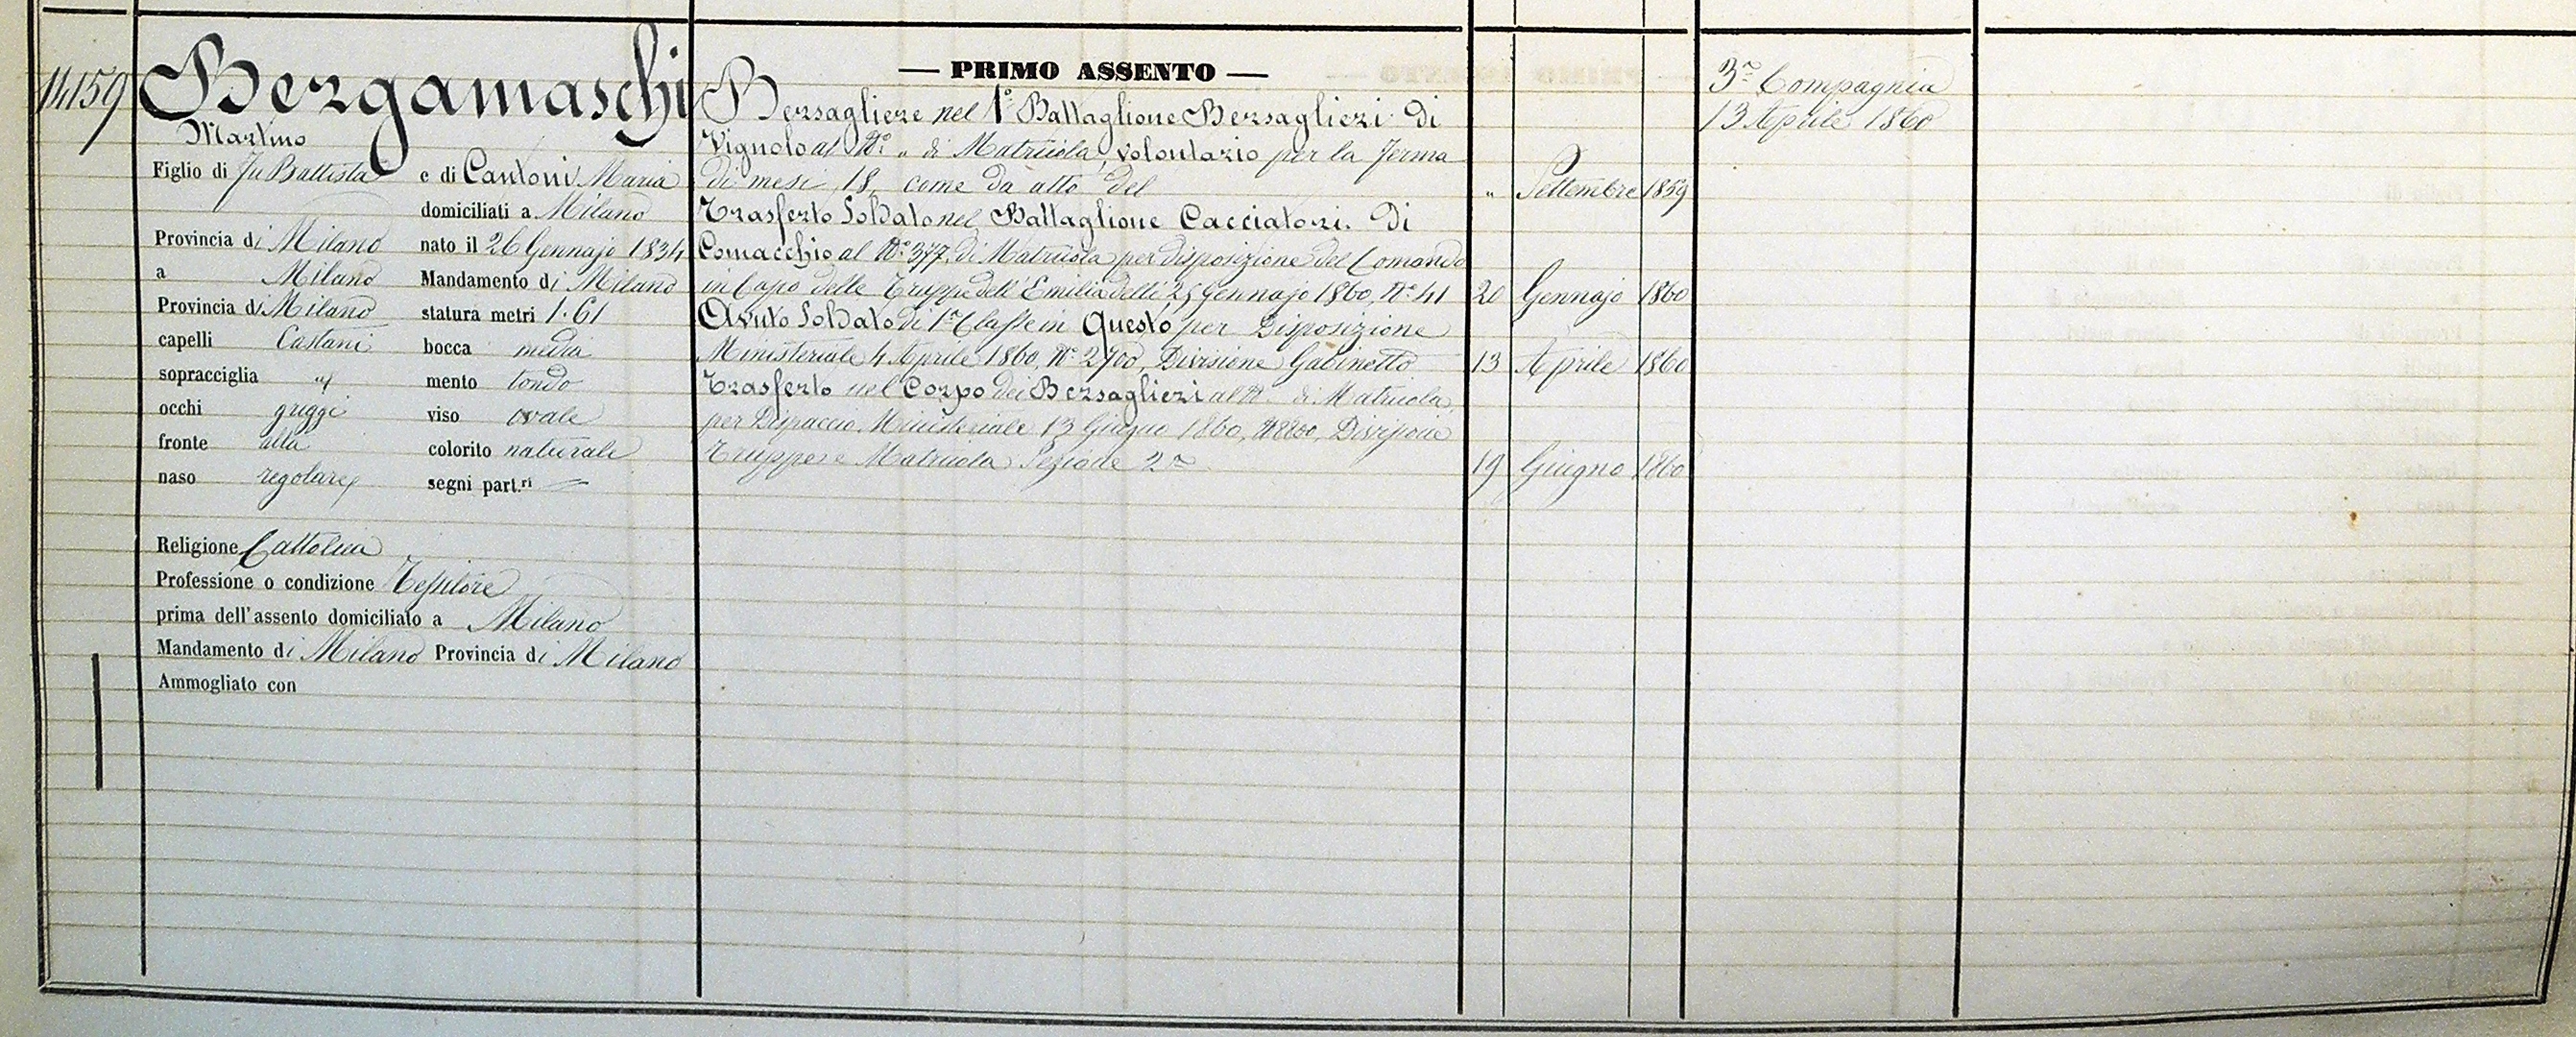 11,159 Bergamaschi
Martino
Figlio di fu Battista e di Cantoni Maria
domiciliati a Milano
Provincia di Milano nato il 26 Gennajo 1834
a Milano Mandamento di Milano
Provincia di Milano statura metri 1.61
capelli Castani bocca media
sopracciglia id mento tondo
occhi griggi viso ovale
fronte alta colorito naturale
naso regolare segni part.ri —
Religione Cattolica
Professione o condizione Tessitore
prima dell'assento domiciliato a Milano
Mandamento di Milano Provincia di Milano
Ammogliato con
— PRIMO ASSENTO —
Bersagliere nel 1º Battaglione Bersaglieri di
Vignolo al Nº „ di Matricola, volontario per la ferma
di mesi 18, come da atto del „ Settembre 1859
Trasferto Soldato nel Battaglione Cacciatori di
Comacchio al Nº 377, di Matricola per disposizione del Comando
in Capo delle Truppe dell'Emilia delli 25 Gennajo 1860, Nº 41 20 Gennajo 1860
Avuto Soldato di 1ª Classe in Questo per Disposizione
Ministeriale 4 Aprile 1860, Nº 2700, Divisione Gabinetto 13 Aprile 1860
Trasferto nel Corpo dei Bersaglieri al Nº di Matricola,
per Dispaccio Ministeriale 13 Giugno 1860, Divisione
Truppe e Matricola Sezione 2ª 19 Giugno 1860
3ª Compagnia
13 Aprile 1860